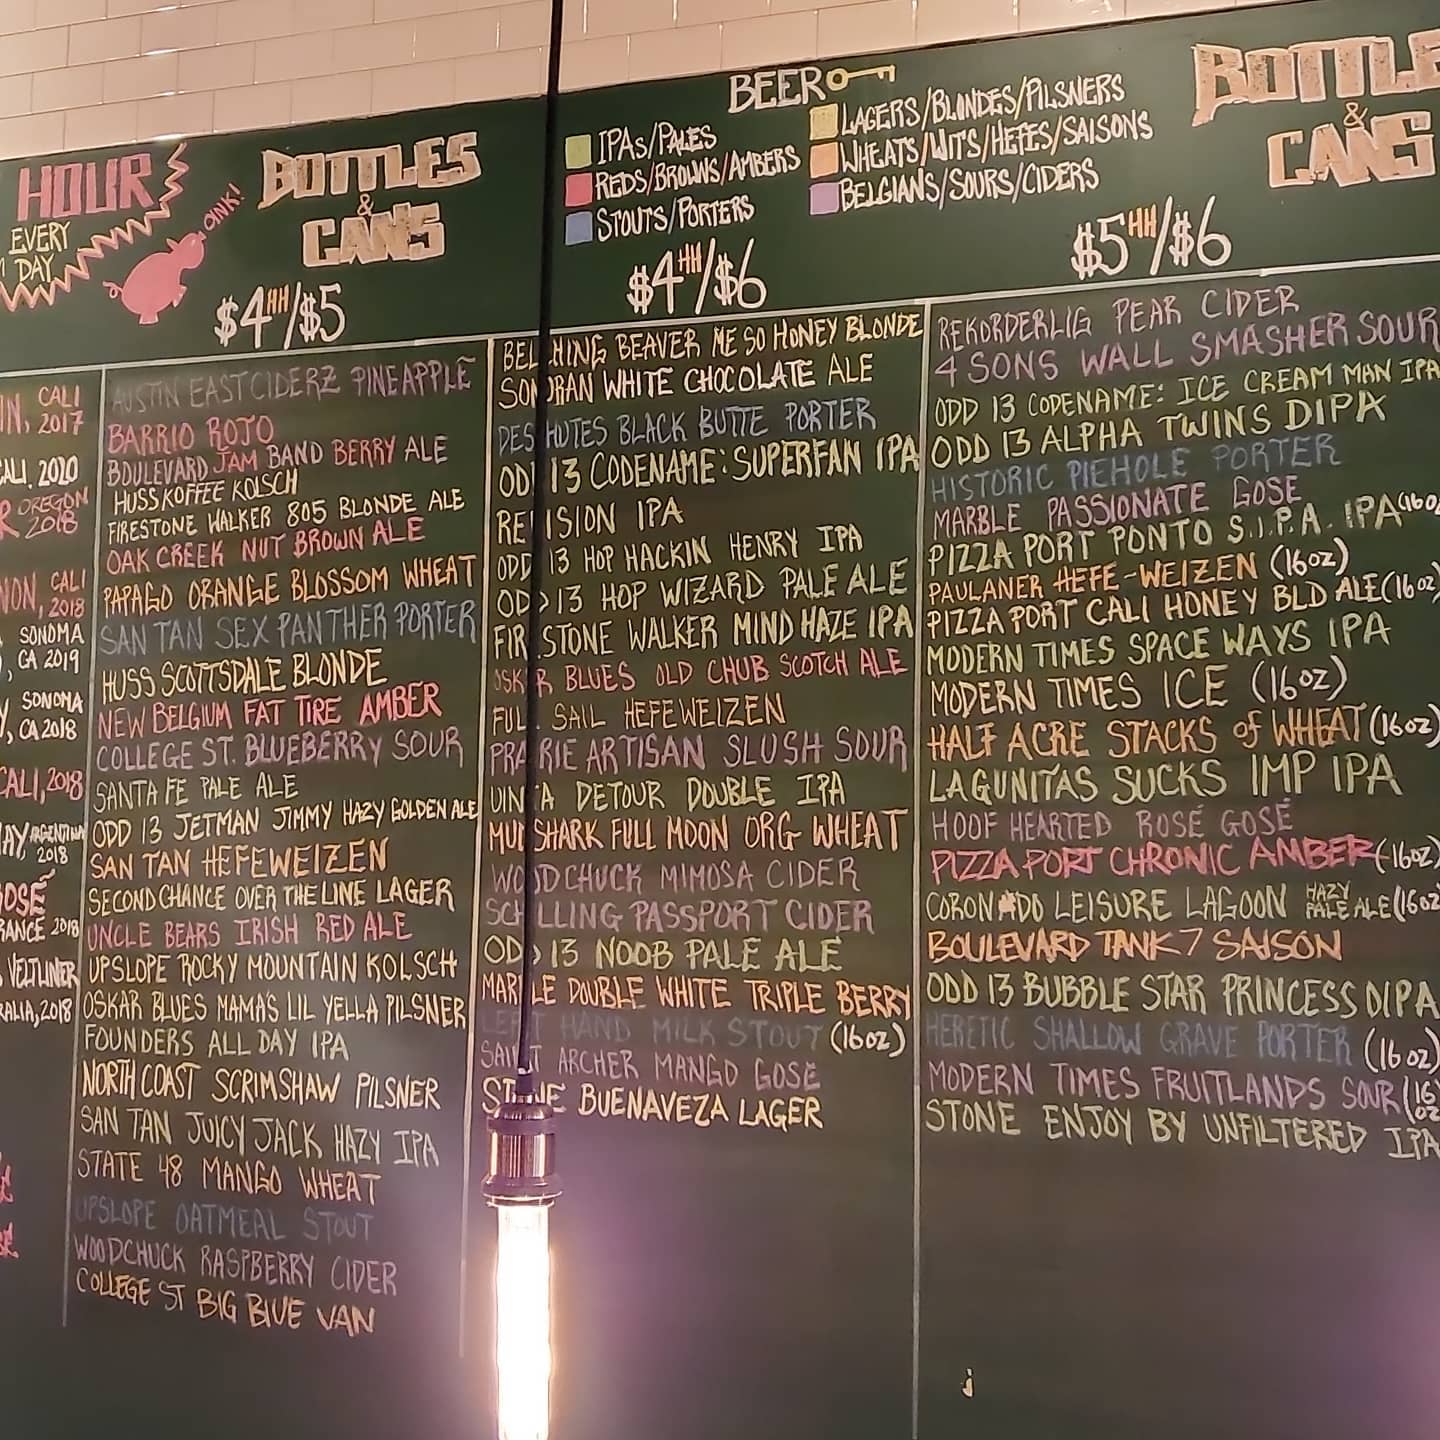 HOUR
EVERY
DAY
OINK!
BOTTLES
&
CANS
$4HH/$5
BEER
IPAs/PALES
REDS/BROWNS/AMBERS
STOUTS/PORTERS
LAGERS/BLONDES/PILSNERS
WHEATS/WITS/HEFES/SAISONS
BELGIANS/SOURS/CIDERS
$4HH/$6
BOTTLE
&
CANS
$5HH/$6
CALI
2017
CALI, 2020
OREGON
2018
CALI
2018
SONOMA
CA 2019
SONOMA
CA 2018
CALI, 2018
ARGENTINA
2018
OSÉ
2018
VELTLINER
RALIA, 2018
AUSTIN EASTCIDERZ PINEAPPLE
BARRIO ROJO
BOULEVARD JAM BAND BERRY ALE
HUSS KOFFEE KOLSCH
FIRESTONE WALKER 805 BLONDE ALE
OAK CREEK NUT BROWN ALE
PAPAGO ORANGE BLOSSOM WHEAT
SAN TAN SEX PANTHER PORTER
HUSS SCOTTSDALE BLONDE
NEW BELGIUM FAT TIRE AMBER
COLLEGE ST. BLUEBERRY SOUR
SANTA FE PALE ALE
ODD 13 JETMAN JIMMY HAZY GOLDEN ALE
SAN TAN HEFEWEIZEN
SECOND CHANCE OVER THE LINE LAGER
UNCLE BEARS IRISH RED ALE
UPSLOPE ROCKY MOUNTAIN KOLSCH
OSKAR BLUES MAMA'S LIL YELLA PILSNER
FOUNDERS ALL DAY IPA
NORTH COAST SCRIMSHAW PILSNER
SAN TAN JUICY JACK HAZY IPA
STATE 48 MANGO WHEAT
UPSLOPE OATMEAL STOUT
WOODCHUCK RASPBERRY CIDER
COLLEGE ST BIG BLUE VAN
BELCHING BEAVER ME SO HONEY BLONDE
SONORAN WHITE CHOCOLATE ALE
DESCHUTES BLACK BUTTE PORTER
ODD 13 CODENAME: SUPERFAN IPA
REVISION IPA
ODD 13 HOP HACKIN HENRY IPA
ODD 13 HOP WIZARD PALE ALE
FIRESTONE WALKER MIND HAZE IPA
OSKAR BLUES OLD CHUB SCOTCH ALE
FULL SAIL HEFEWEIZEN
PRAIRIE ARTISAN SLUSH SOUR
UINTA DETOUR DOUBLE IPA
MUDSHARK FULL MOON ORG WHEAT
WOODCHUCK MIMOSA CIDER
SCHILLING PASSPORT CIDER
ODD 13 NOOB PALE ALE
MARBLE DOUBLE WHITE TRIPLE BERRY
LEFT HAND MILK STOUT (16oz)
SAINT ARCHER MANGO GOSE
STONE BUENAVEZA LAGER
REKORDERLIG PEAR CIDER
4 SONS WALL SMASHER SOUR
ODD 13 CODENAME: ICE CREAM MAN IPA
ODD 13 ALPHA TWINS DIPA
HISTORIC PIEHOLE PORTER
MARBLE PASSIONATE GOSE
PIZZA PORT PONTO S.I.P.A. IPA (16oz
PAULANER HEFE-WEIZEN (16oz)
PIZZA PORT CALI HONEY BLD ALE (16oz)
MODERN TIMES SPACE WAYS IPA
MODERN TIMES ICE (16oz)
HALF ACRE STACKS of WHEAT (16oz)
LAGUNITAS SUCKS IMP IPA
HOOF HEARTED ROSÉ GOSÉ
PIZZA PORT CHRONIC AMBER (16oz)
CORONADO LEISURE LAGOON HAZY PALE ALE (16oz
BOULEVARD TANK 7 SAISON
ODD 13 BUBBLE STAR PRINCESS DIPA
HERETIC SHALLOW GRAVE PORTER (16oz)
MODERN TIMES FRUITLANDS SOUR (16oz
STONE ENJOY BY UNFILTERED IPA